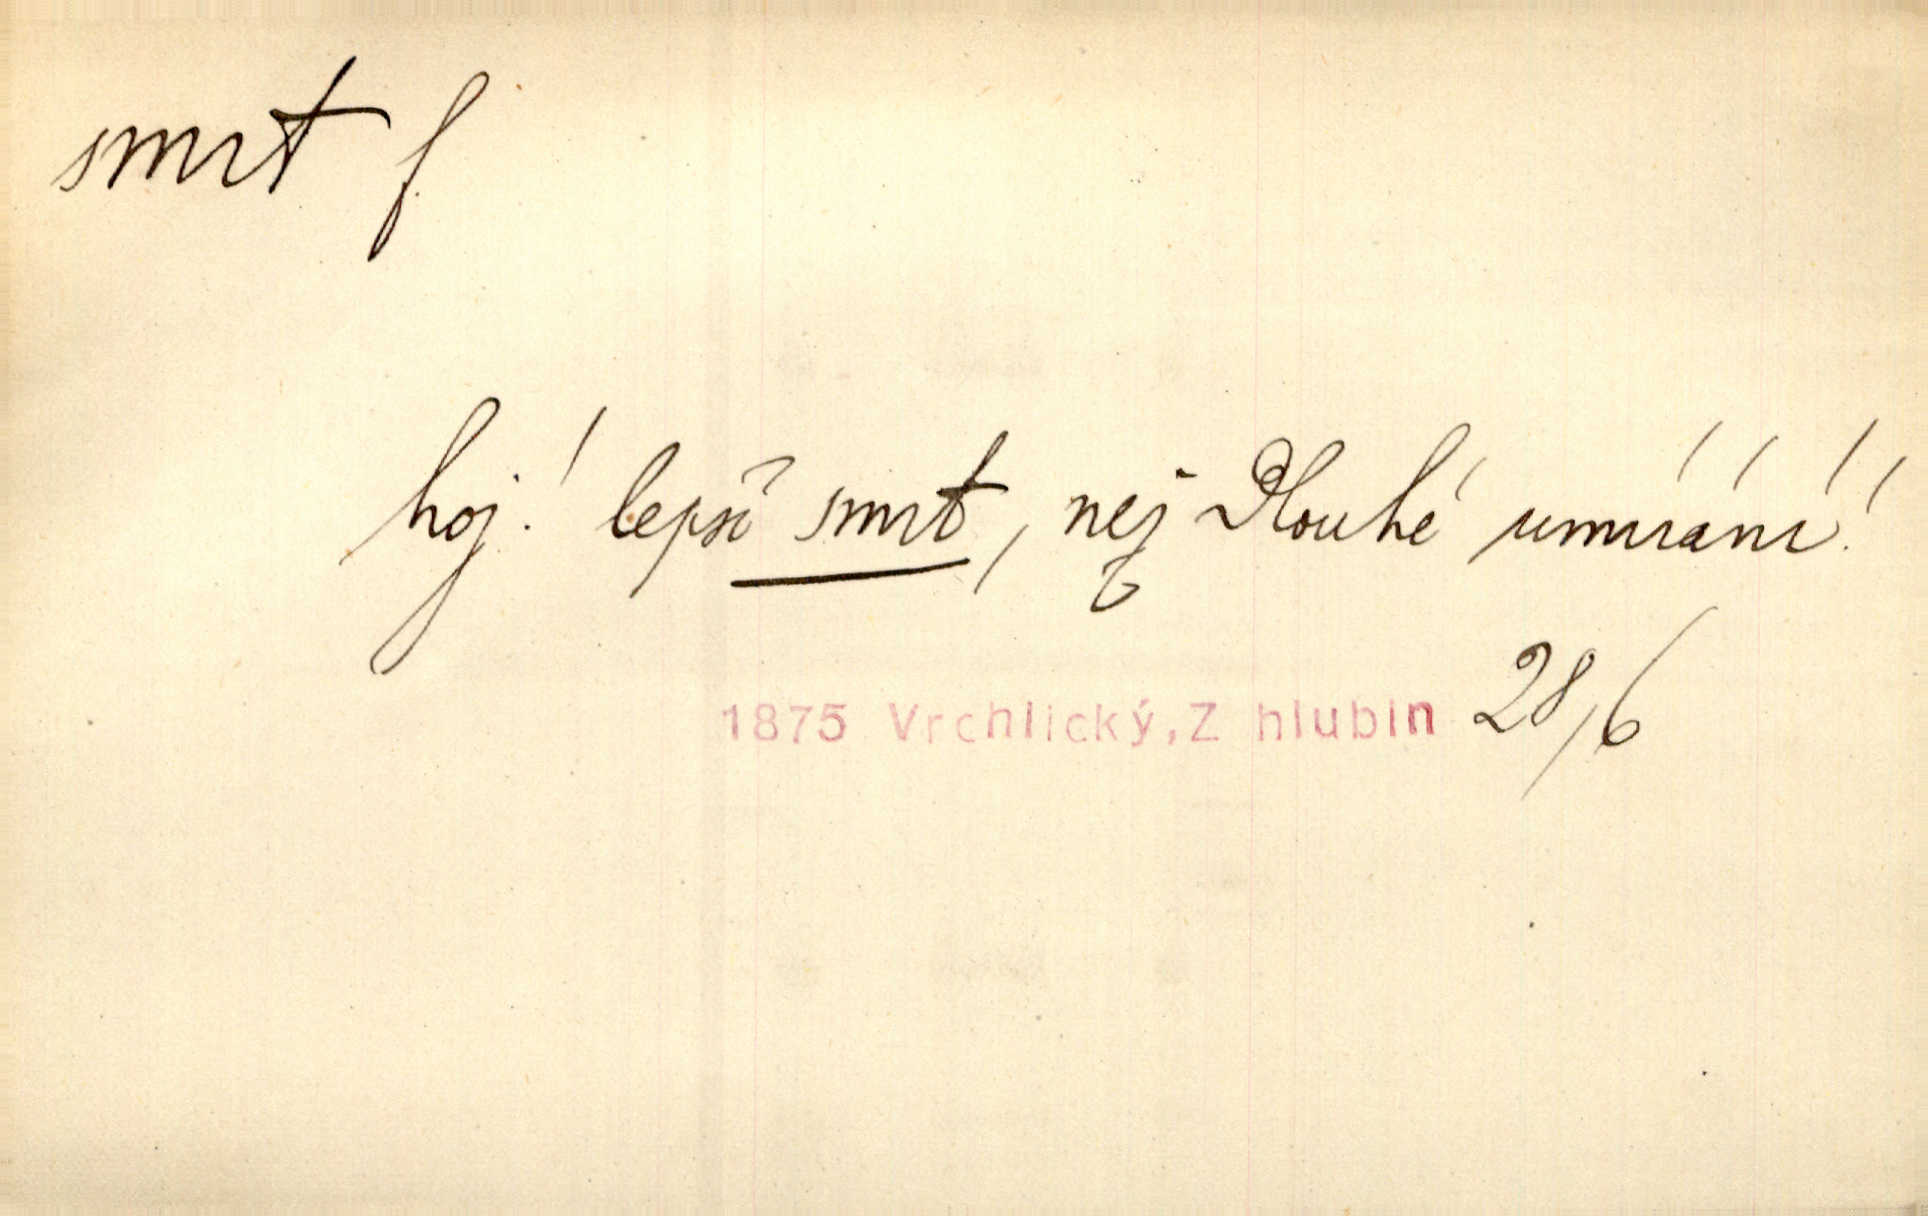 smrt f
hoj! lepší smrt, než dlouhé umírání!
1875 Vrchlický, Z hlubin 28,6